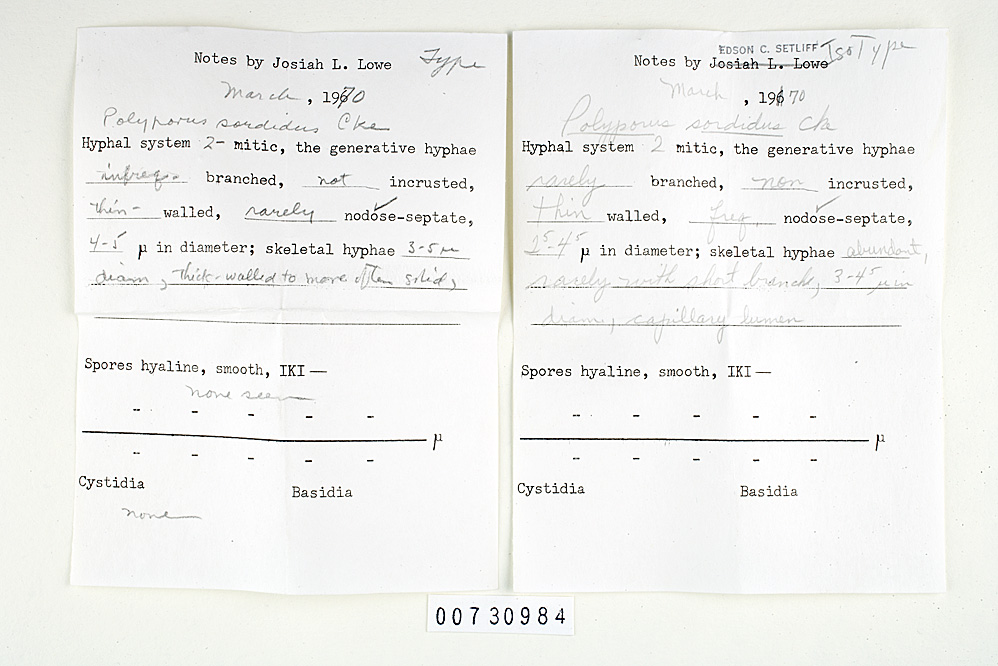 Notes by Josiah L. Lowe Type
March, 1970
Polyporus sordidus Cke
Hyphal system 2-mitic, the generative hyphae
infreq. branched, not incrusted,
thin-walled, rarely nodose-septate,
4-5 µ in diameter; skeletal hyphae 3-5 µ
diam, thick-walled to more often solid,
Spores hyaline, smooth, IKI —
none seen
- - - - -
µ
- - - - -
Cystidia Basidia
none
EDSON C. SETLIFF IsoType
Notes by Josiah L. Lowe
March, 1970
Polyporus sordidus Cke
Hyphal system 2 mitic, the generative hyphae
rarely branched, non incrusted,
thin walled, freq. nodose-septate,
2.5-4.5 µ in diameter; skeletal hyphae abundant,
rarely with short branches, 3-4.5 µ in
diam, capillary lumen
Spores hyaline, smooth, IKI —
- - - - -
µ
- - - - -
Cystidia Basidia
00730984